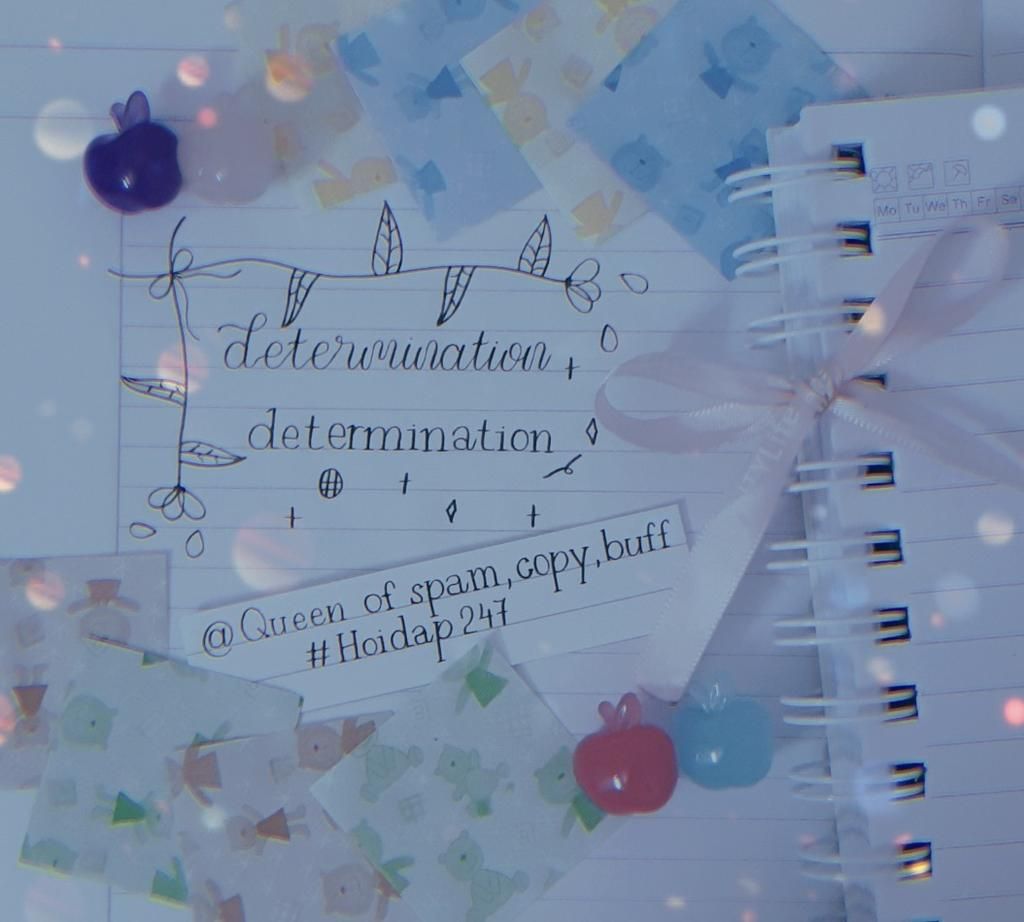 Mo Tu We Th Fr Sa
determination
determination
@Queen of spam,copy,buff
#Hoidap247